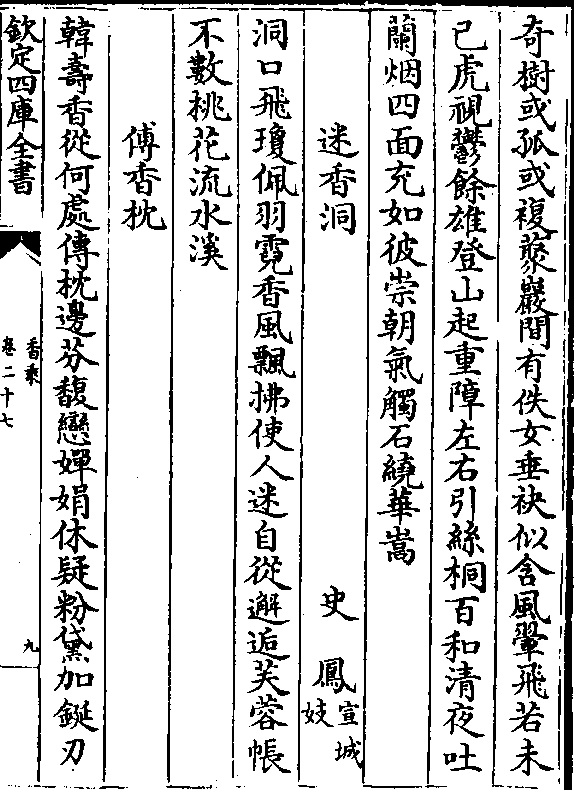 奇樹或孤或複藂巖間有佚女垂袂似含風翬飛若未
已虎視鬱餘雄登山起重障左右引絲桐百和清夜吐
蘭烟四面充如彼崇朝氣觸石繞華嵩
迷香洞 史鳳 宣城妓
洞口飛瓊佩羽霓香風飄拂使人迷自從邂逅芙蓉帳
不數桃花流水溪
傅香枕
韓壽香從何處傳枕邊芬馥戀嬋娟休疑粉黛加鋋刃
欽定四庫全書
香乘
卷二十七
九